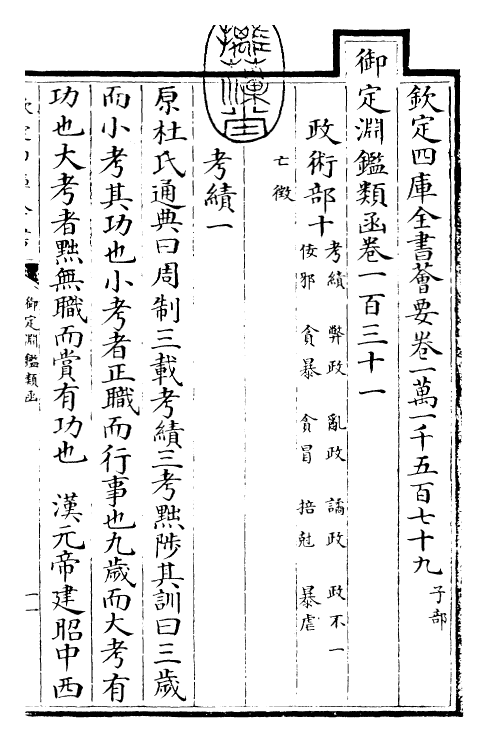 欽定四庫全書薈要卷一萬一千五百七十九 子部
御定淵鑑類函卷一百三十一
政術部十 考績 弊政 亂政 譎政 政不一
佞邪 貪暴 貪冒 掊尅 暴虐
亡徵
考績一
原杜氏通典曰周制三載考績三考黜陟其訓曰三歲
而小考其功也小考者正職而行事也九歲而大考有
功也大考者黜無職而賞有功也 漢元帝建昭中西
御定淵鑑類函
一